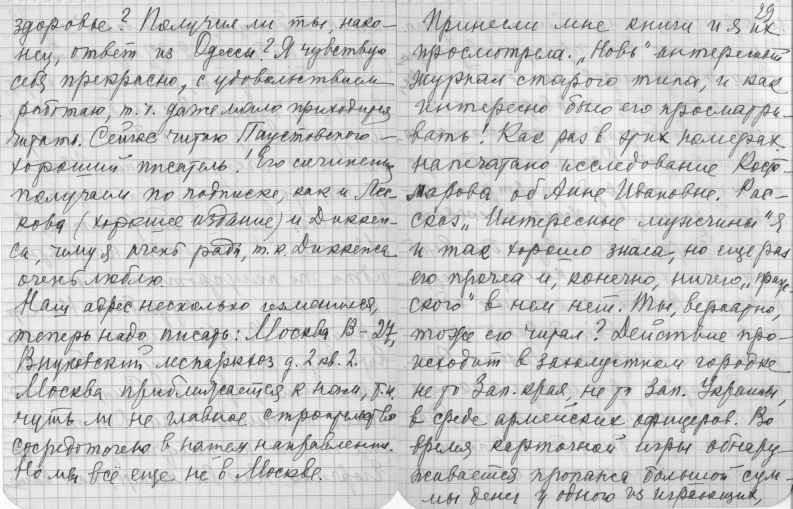 здоровье? Получил ли ты нако-
нец, ответ из Одессы? Я чувствую
себя прекрасно, с удовольствием
работаю, т.ч. даже мало приходится
читать. Сейчас читаю Паустовского –
хороший писатель! Его сочинения
получаем по подписке, как и Лес-
кова (хорошее издание) и Диккен-
са, чему я очень рада, т.к. Диккенса
очень люблю.
Наш адрес несколько изменился,
теперь надо писать: Москва В-27,
Внуковский леспаркхоз д. 2 кв. 2.
Москва приближается к нам, т.к.
чуть ли не главное строительство
сосредоточено в нашем направлении.
Но мы всё еще не в Москве.
29
Принесли мне книги и я их
просмотрела. „Новь" интересный
журнал старого типа, и как
интересно было его просматри-
вать! Как раз в этих номерах
напечатано исследование Косто-
марова об Анне Ивановне. Рас-
сказ „Интересные мужчины" я
и так хорошо знала, но еще раз
его прочла и, конечно, ничего
ского" в нем нет. Ты, вероятно,
тоже его читал? Действие про-
исходит в захолустном городке
не то Зап. края, не то Зап. Украины,
в среде армейских офицеров. Во
время карточной игры обнару-
живается пропажа большой сум-
мы денег у одного из играющих,